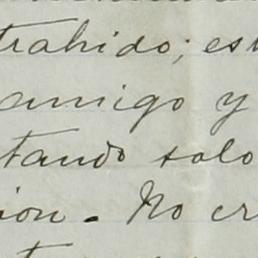 trahido; est
amigo y
tando solo
ion. No cr